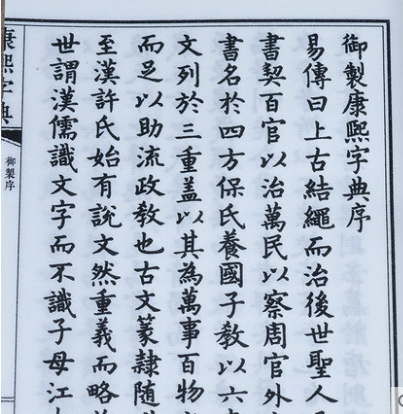 御製康熙字典序
易傳曰上古結繩而治後世聖人
書契百官以治萬民以察周官外
書名於四方保氏養國子教以六
文列於三重盖以其為萬事百物
而足以助流政教也古文篆隸隨
至漢許氏始有說文然重義而略
世謂漢儒識文字而不識子母江
康熙字典
御製序